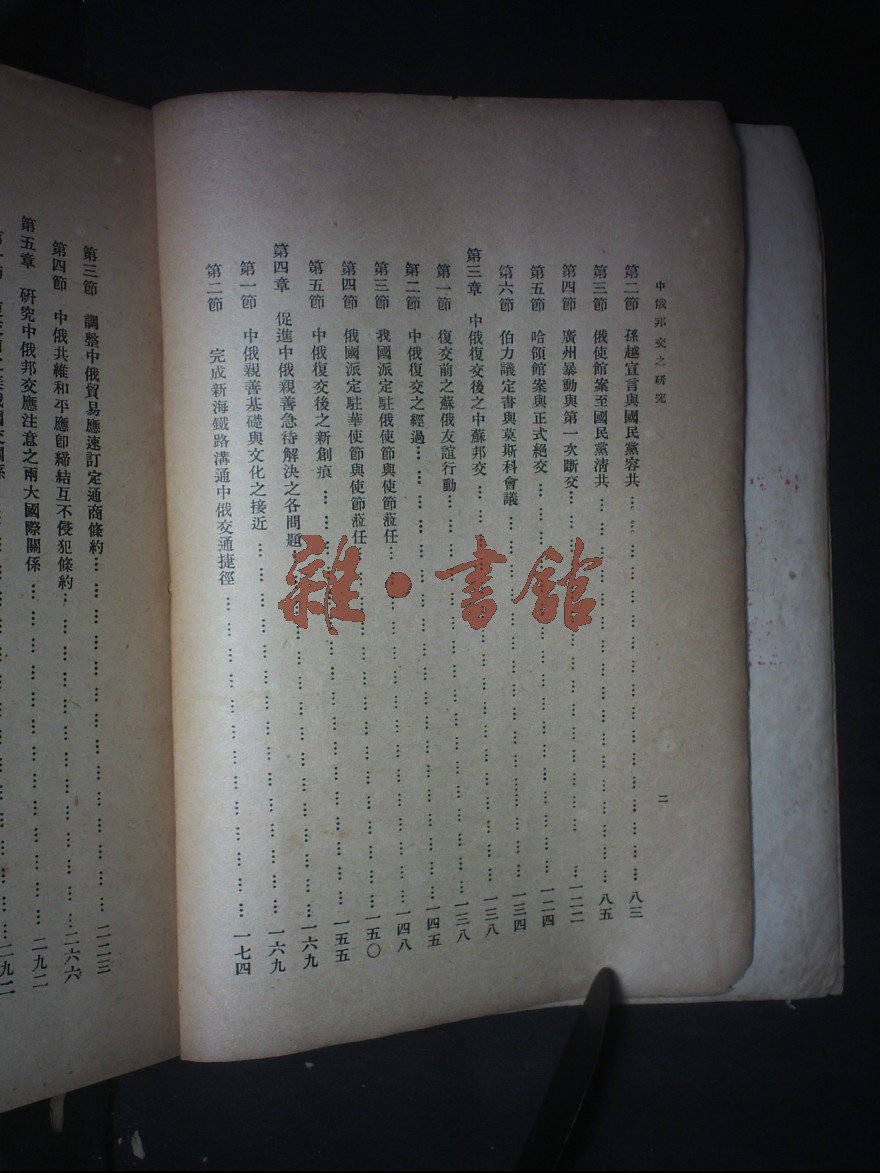 中俄邦交之研究 二
第二節 孫越宣言與國民黨容共……八三
第三節 俄使館案至國民黨清共……八五
第四節 廣州暴動與第一次斷交……一二二
第五節 哈領館案與正式絕交……一二四
第六節 伯力議定書與莫斯科會議……一三四
第三章 中俄復交後之中蘇邦交……一三八
第一節 復交前之蘇俄友誼行動……一三八
第二節 中俄復交之經過……一四五
第三節 我國派定駐俄使節與使節蒞任……一四八
第四節 俄國派定駐華使節與使節蒞任……一五〇
第五節 中俄復交後之新創痕……一五五
第四章 促進中俄親善急待解決之各問題……一六九
第一節 中俄親善基礎與文化之接近……一六九
第二節 完成新海鐵路溝通中俄交通捷徑……一七四
第三節 調整中俄貿易應速訂定通商條約……二二三
第四節 中俄共維和平應卽締結互不侵犯條約……二六六
第五章 研究中俄邦交應注意之兩大國際關係……二九二
二九二
雜·書館